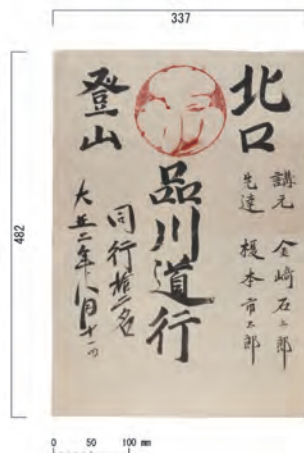 337
482
北口
講元 金崎
先達 榎本
品川道行
同行拾二名
登山
大正二年八月十一日
0 50 100 mm